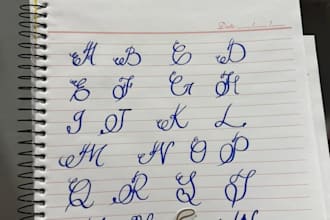 Date
A B C D
E F G H
I J K L
M N O P
Q R S T